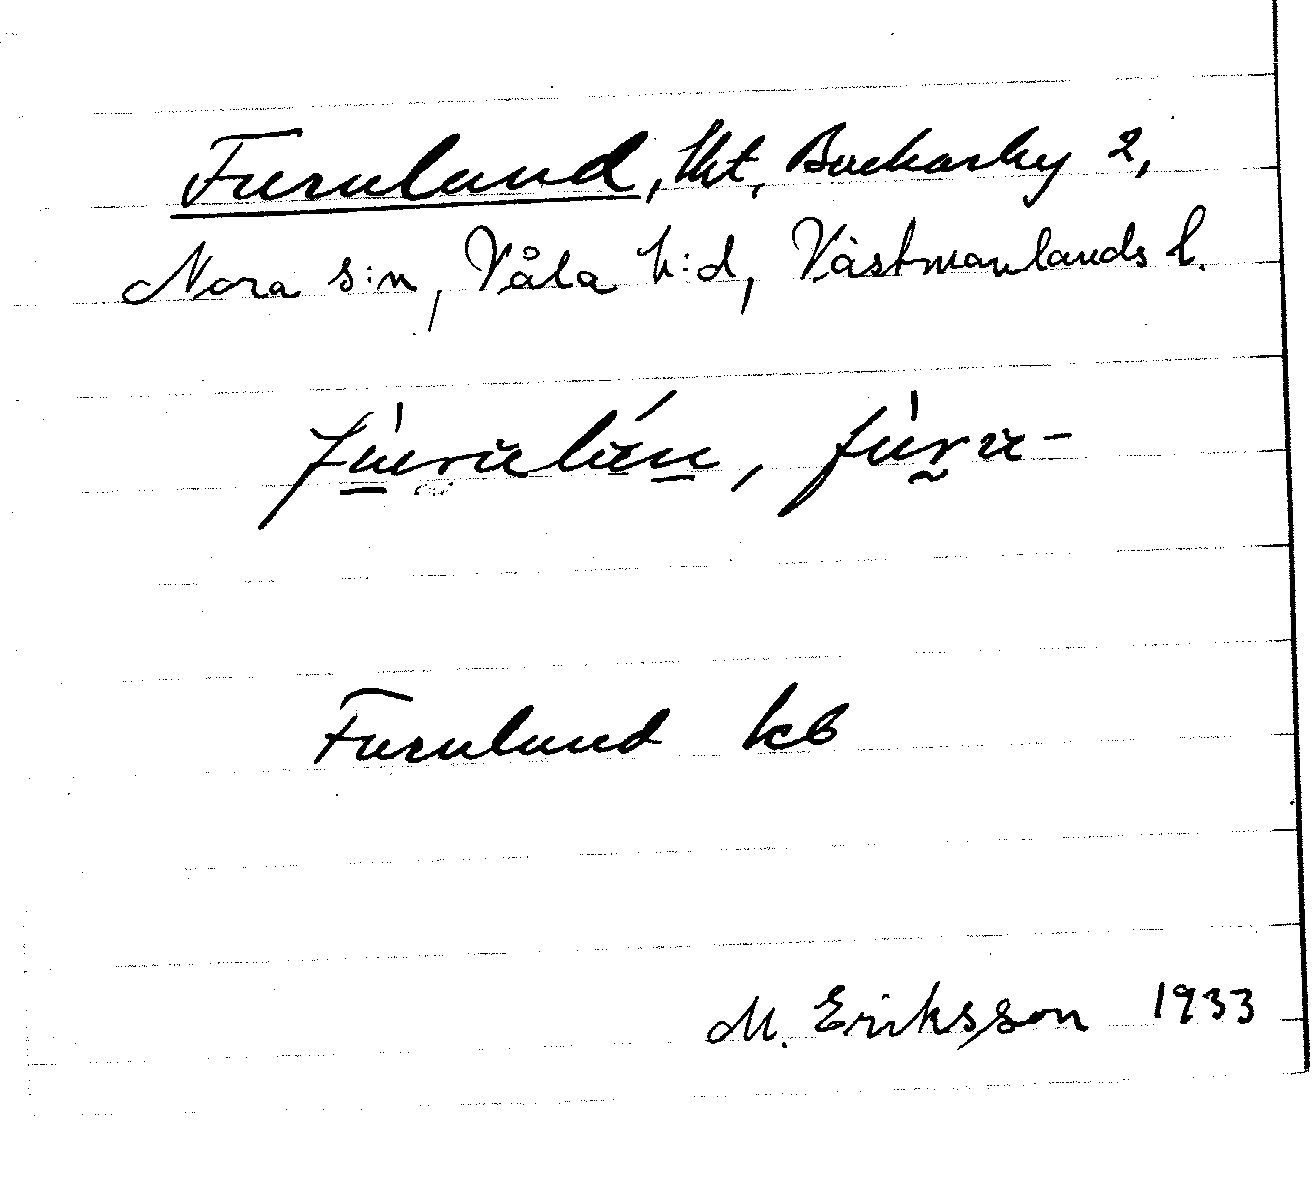 Furulund, lht, Bockarby 2,
Nora s:n, Våla h:d, Västmanlands l.
Furulund kb
M. Eriksson 1933